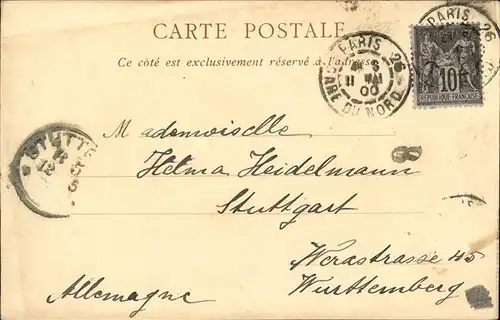 CARTE POSTALE
Ce côté est exclusivement réservé à l'adresse
PARIS 26
GARE DU NORD
11 MAI
00
PARIS 26
10
REPUBLIQUE FRANÇAISE
STUTTG
8
Mademoiselle
Helma Heidelmann
Stuttgart
Werastrasse 45
Württemberg
Allemagne